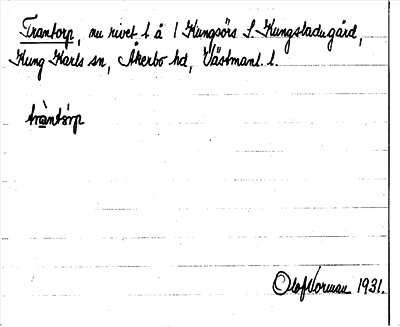 Trantorp, nu rivet t å 1 Kungsörs S. Kungsladugård,
Kung Karls sn, Åkerbo hd, Västmanl. l.
tràntórp
Olof Norman 1931.